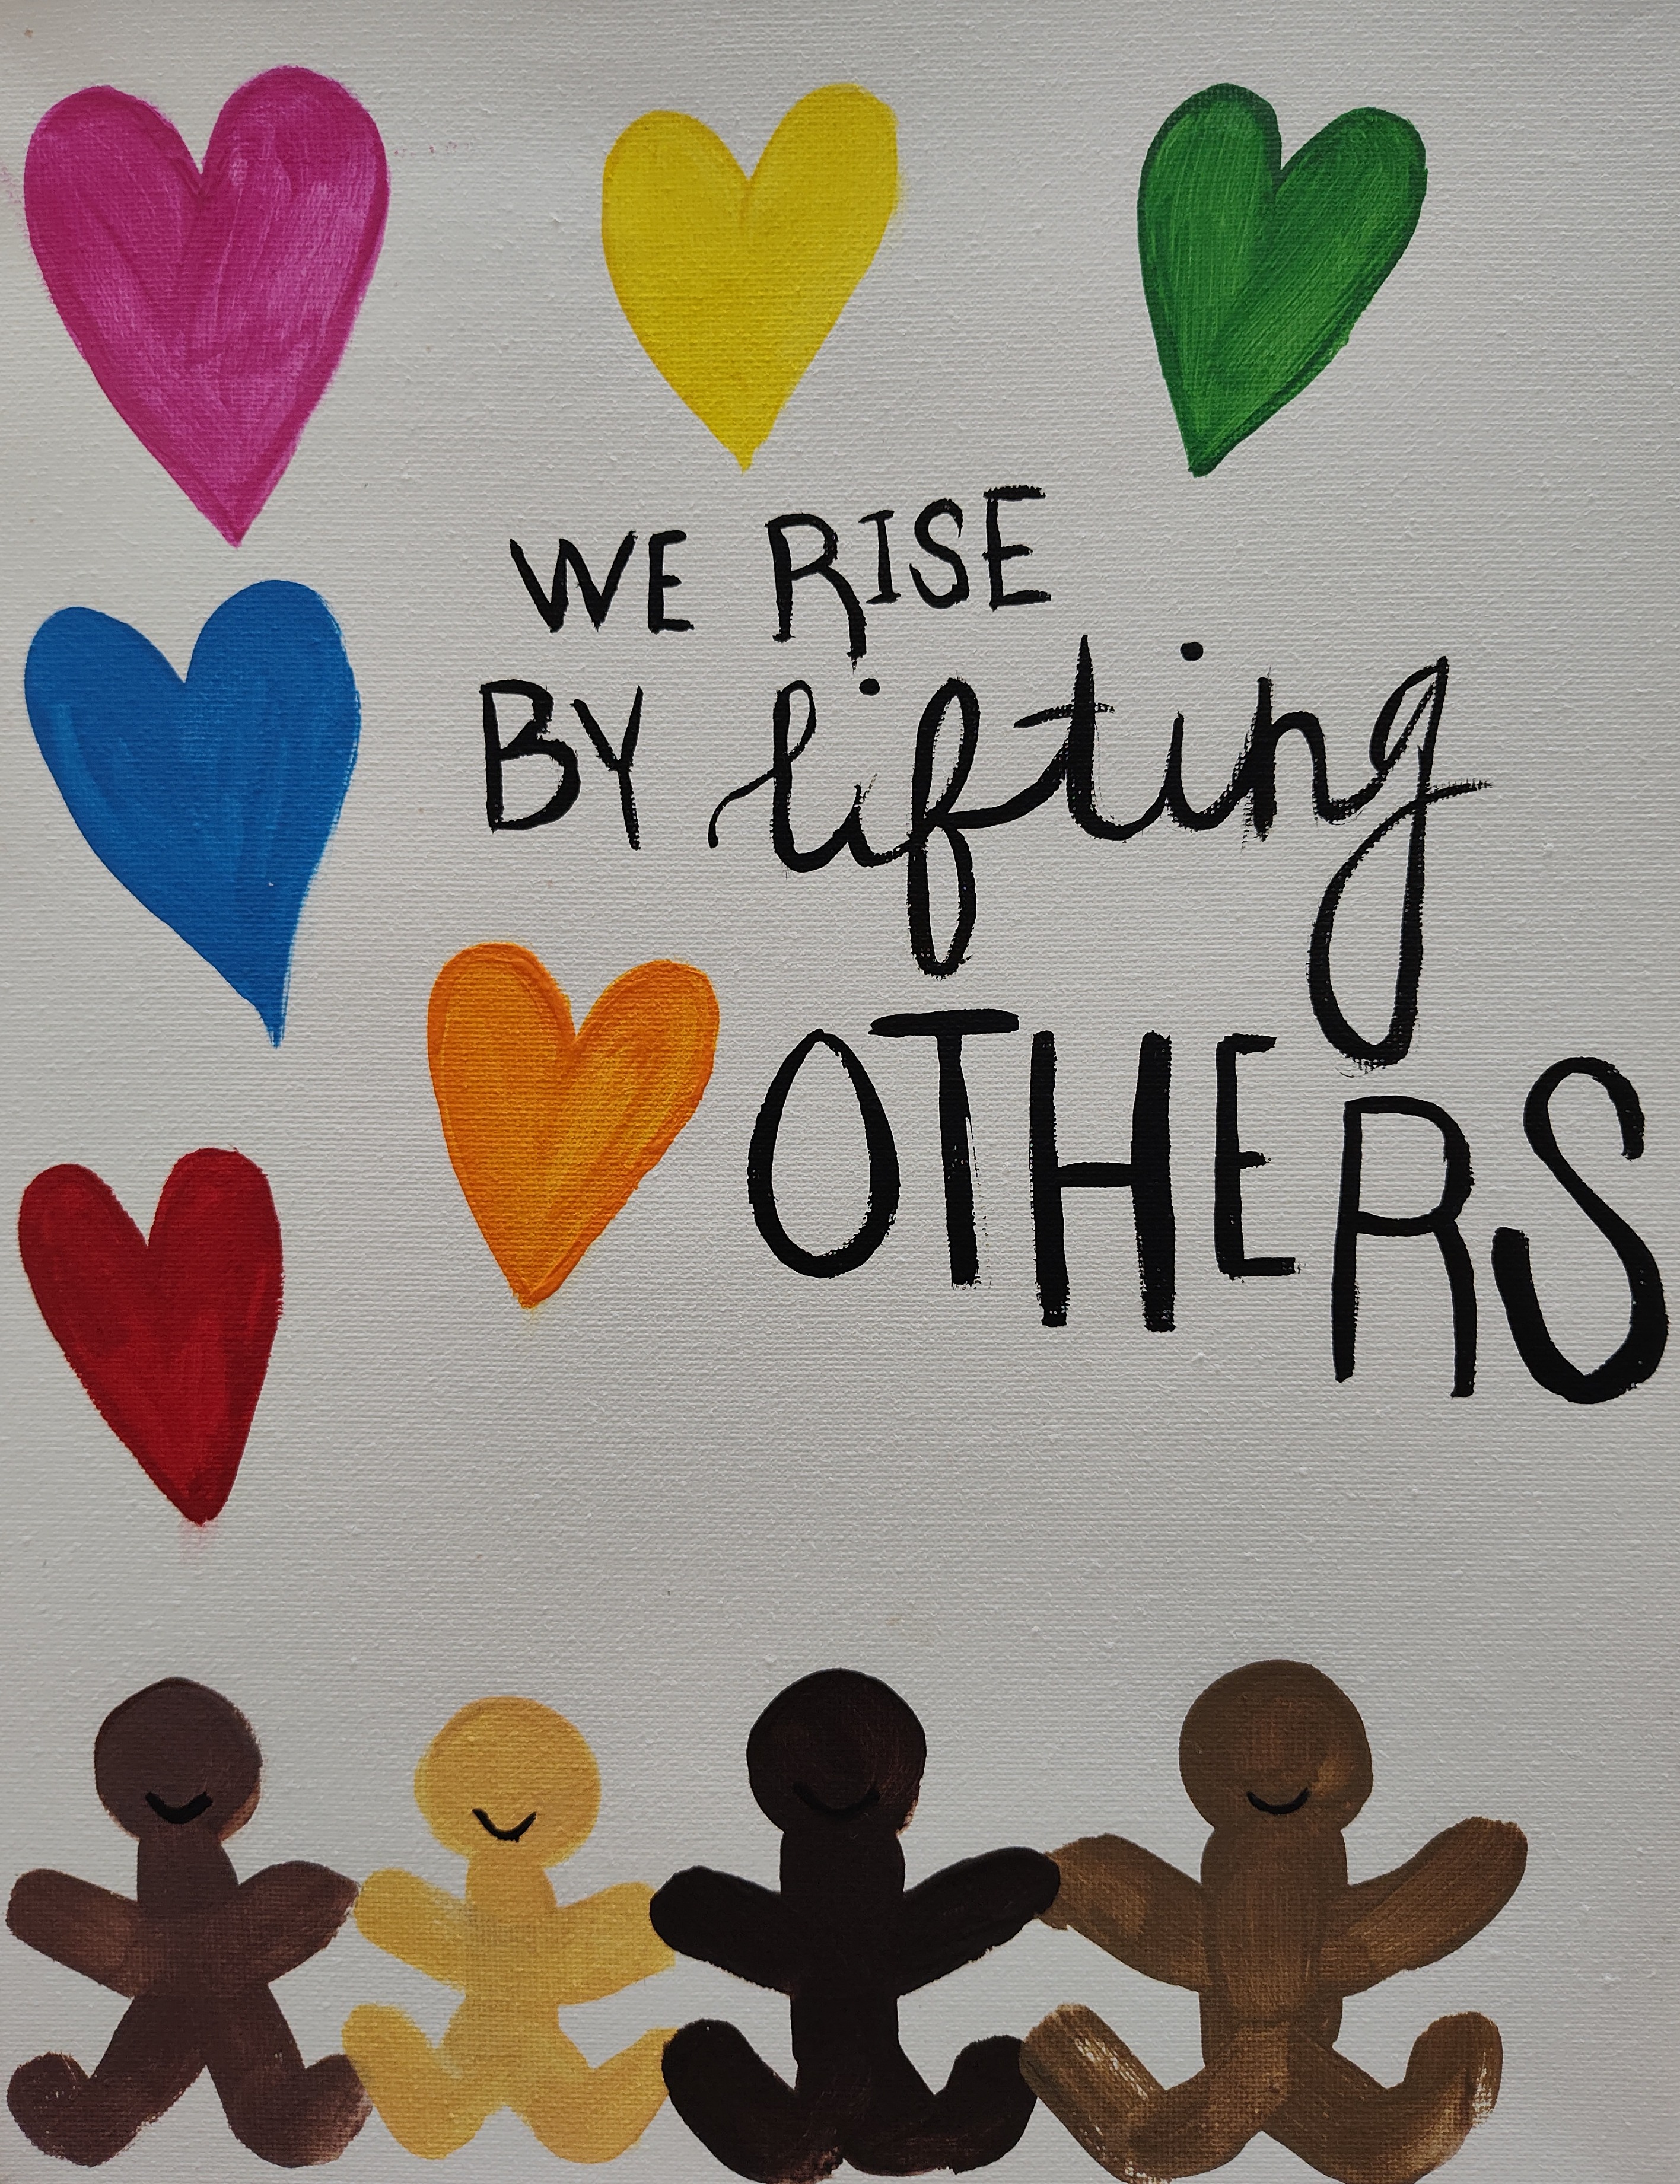 WE RISE
BY lifting
OTHERS